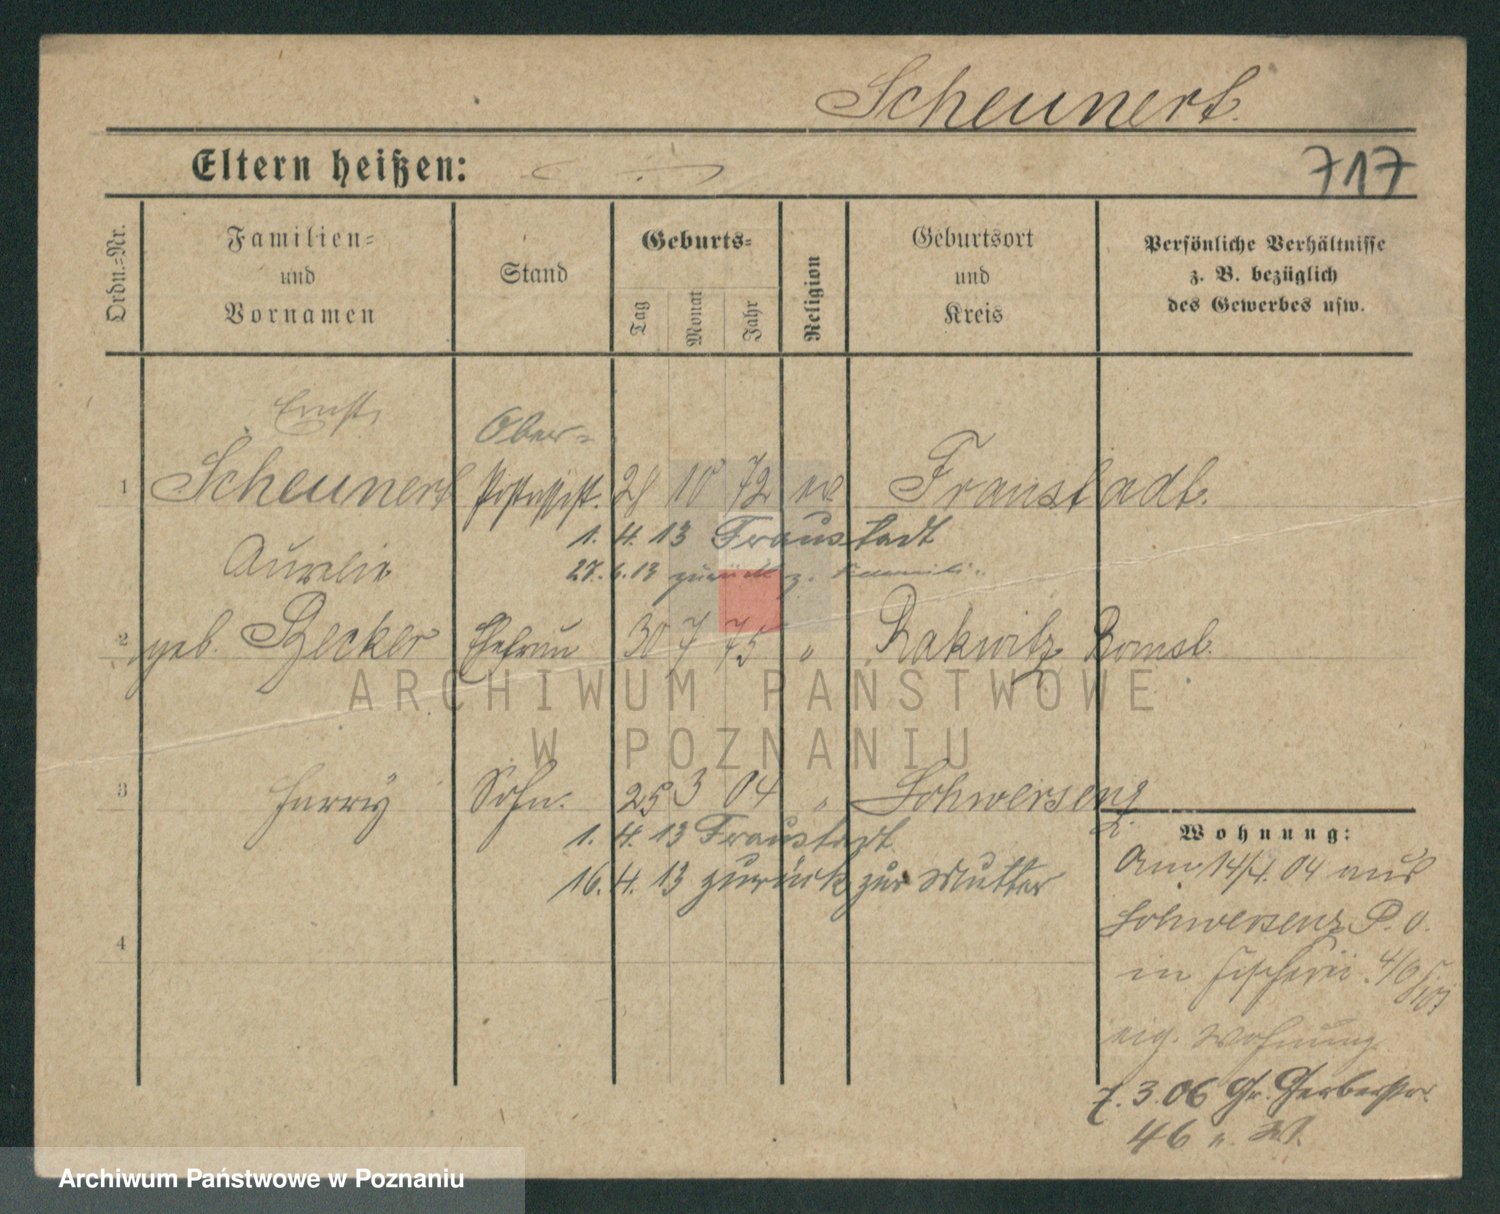 Scheunert.
Eltern heißen:
717
Ordn.=Nr.
Familien=
und
Vornamen
Stand
Geburts=
Tag
Monat
Jahr
Religion
Geburtsort
und
Kreis
Persönliche Verhältnisse
z. B. bezüglich
des Gewerbes usw.
Ernst,
Ober=
1 Scheunert 28 10 72 ev Fraustadt.
1. 4. 13 Fraustadt
Aurelie
27. 6. 13 zurück z. Familie.
2 geb. Becker Ehefrau 30 7 75 " Rakwitz Bomst.
ARCHIWUM PAŃSTWOWE
W POZNANIU
3 Harry Sohn. 25 3 04 " Schwersenz
1. 4. 13 Fraustadt
16. 4. 13 zurück zur Mutter
4
Wohnung:
Am 14/4. 04 aus
Schwersenz P. O.
in Fischerei
eig. Wohnung
7. 3. 06 Gr. Gerberstr.
46
Archiwum Państwowe w Poznaniu